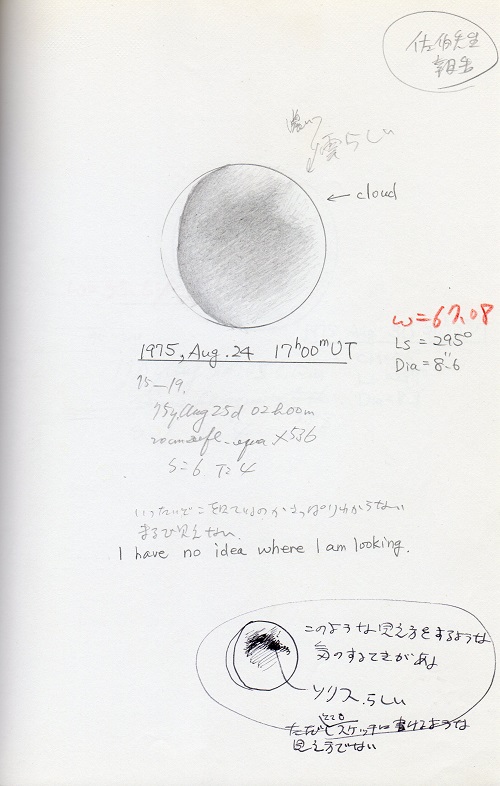 佐伯先生
報告
濃い
雲らしい
← cloud
1975, Aug. 24 17ʰ00ᵐUT
ω=67.08
Ls = 295°
Dia = 8".6
75-19.
75y, Aug 25d 02h00m
20cm refl. equa ×536
S=6 T=4
いったいどこを見ているのかさっぱりわからない
まるで見えない.
I have no idea where I am looking.
このような見え方をするような
気のするときがある
ソリス.らしい
ただしスケッチに書けるような
見え方でない